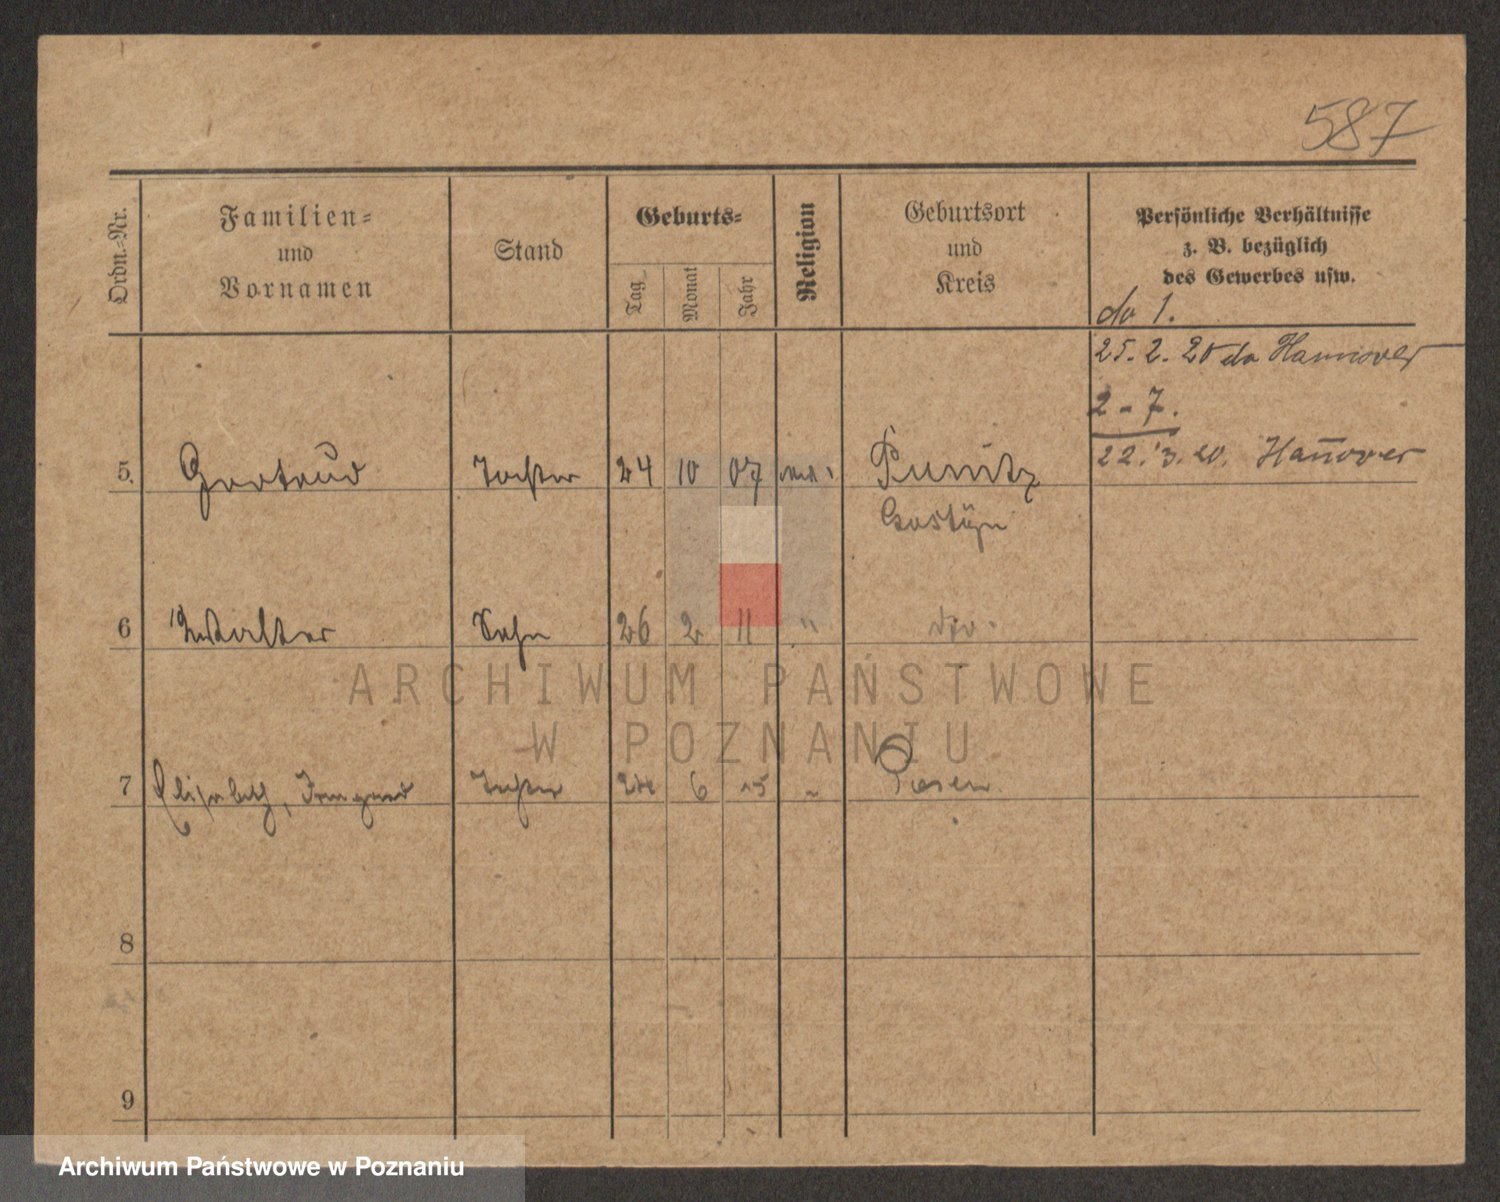 587
Ordn.-Nr.
Familien-
und
Vornamen
Stand
Geburts-
Tag
Monat
Jahr
Religion
Geburtsort
und
Kreis
Persönliche Verhältnisse
z. B. bezüglich
des Gewerbes usw.
do 1.
25. 2. 20 do Hannover
2 - 7.
22. 3. 20. Hannover
5. Gertrud Tochter 24 10 07 Punitz
Gostyn
6 Walter Sohn 26 2 11 " do.
7 Elisabeth, Irmgard Tochter 24 6 15 " Posen
8
9
ARCHIWUM PAŃSTWOWE
W POZNANIU
Archiwum Państwowe w Poznaniu